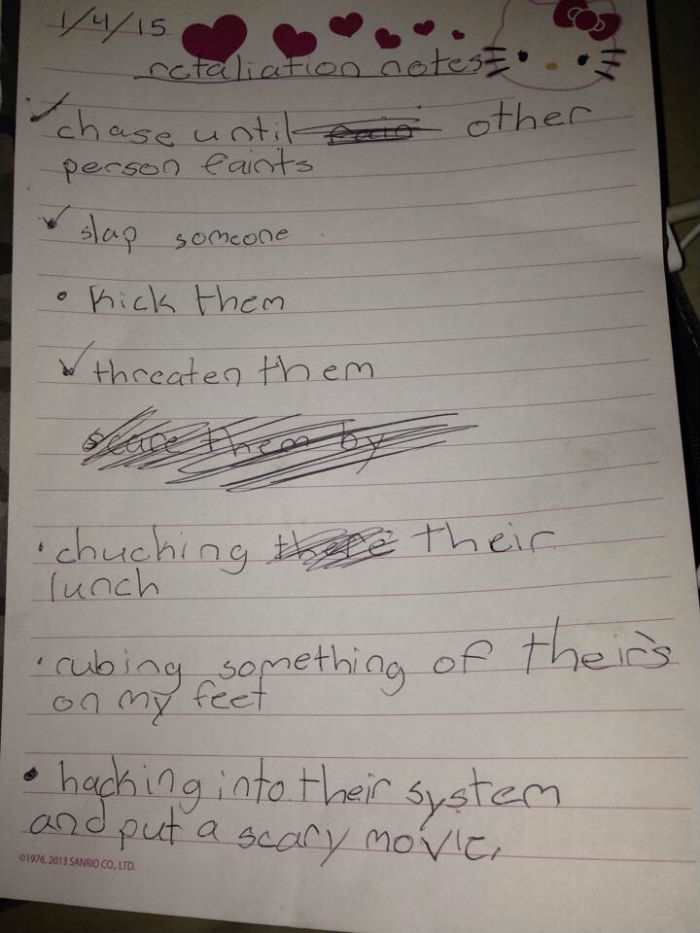 1/4/15
retaliation notes
chase until other
person faints
slap someone
kick them
threaten them
scare them by
chucking there their
lunch
rubing something of their's
on my feet
hacking into their system
and put a scary movie.
©1976, 2013 SANRIO CO., LTD.